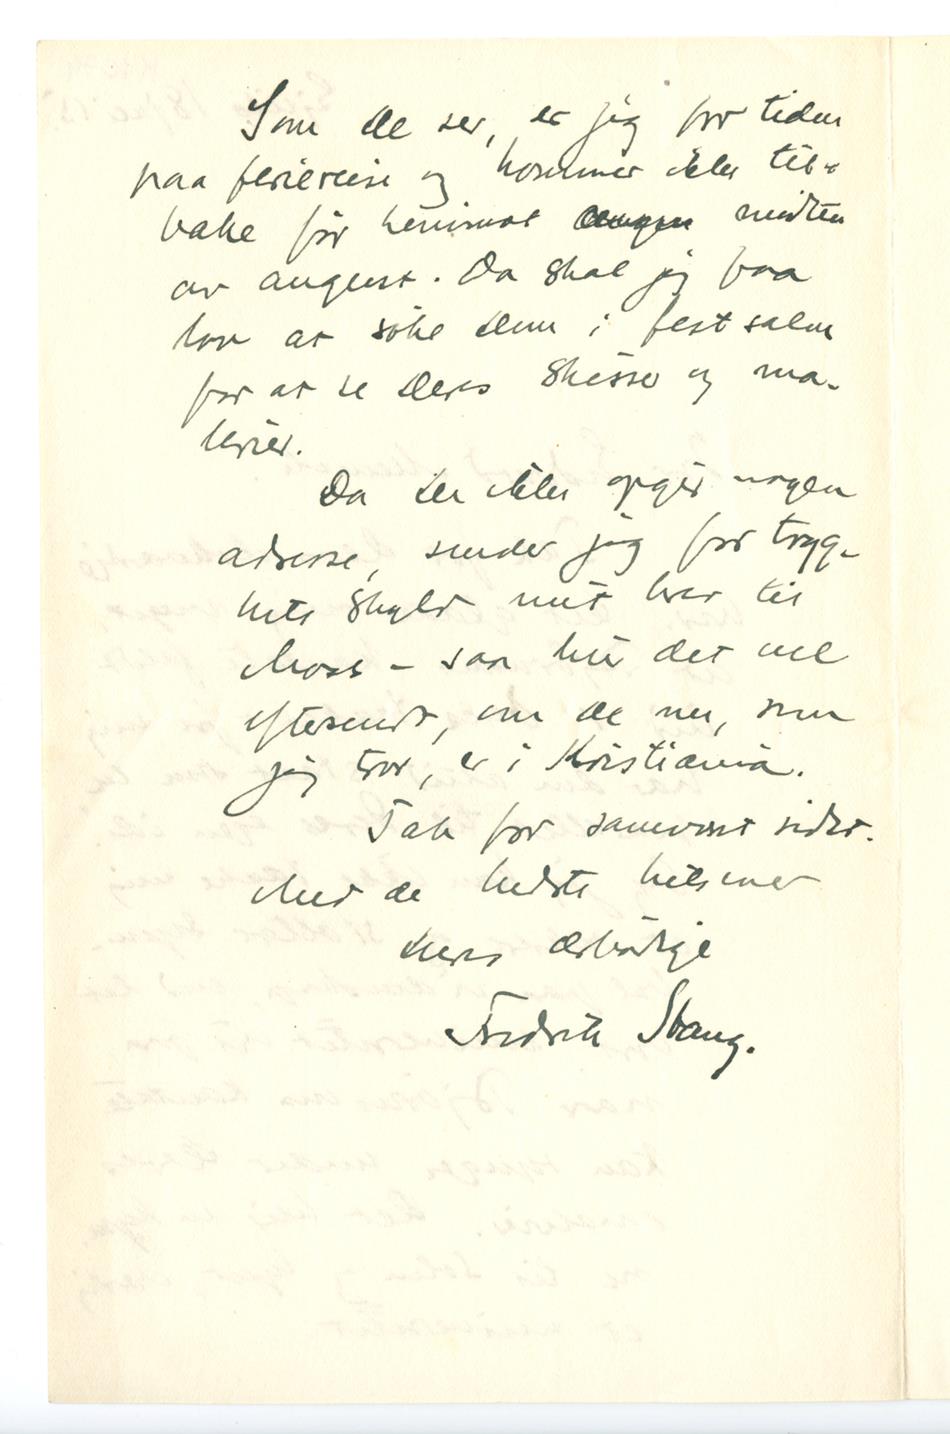 Som De ser, er jeg for tiden
paa feriereise og kommer ikke til-
bake før henimot midten
av august. Da skal jeg faa
lov at søke Dem i festsalen
for at se Deres skisser og ma-
lerier.
Da De ikke opgir nogen
adresse, sender jeg for tryg-
hets skyld mit brev til
Moss – saa blir det vel
eftersendt, om De nu, som
jeg tror, er i Kristiania.
Tak for samværet sidst.
Med de bedste hilsener
Deres ærbødige
Fredrik Stang.